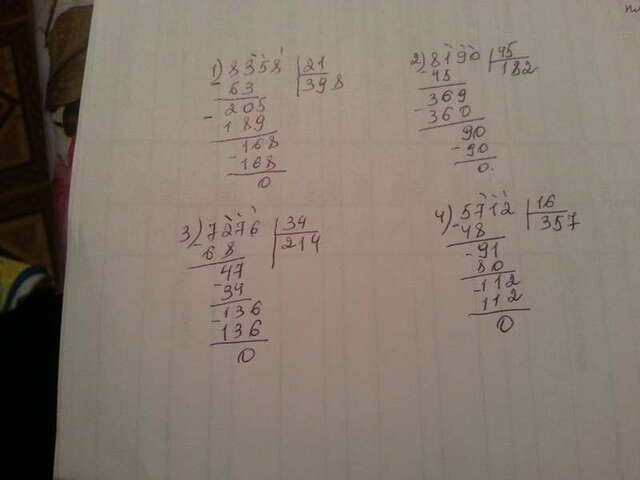 1) 8358 | 21
- 63 | 398
- 205
189
- 168
- 168
0
2) 8190 | 45
- 45 | 182
369
- 360
90
- 90
0.
3) 7276 | 34
- 68 | 214
47
- 34
- 136
136
0
4) 5712 | 16
- 48 | 357
- 91
80
- 112
112
0